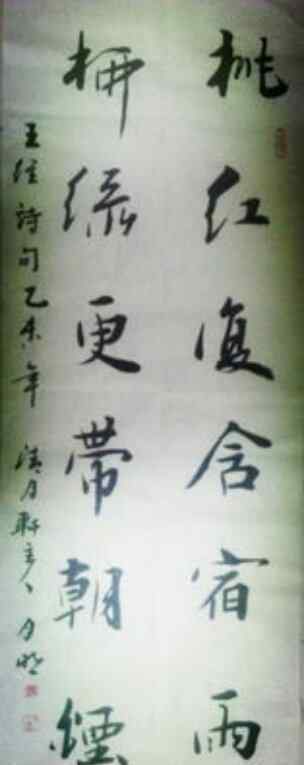 桃红復含宿雨
柳绿更帶朝煙
王维詩句乙未年 清月軒主人